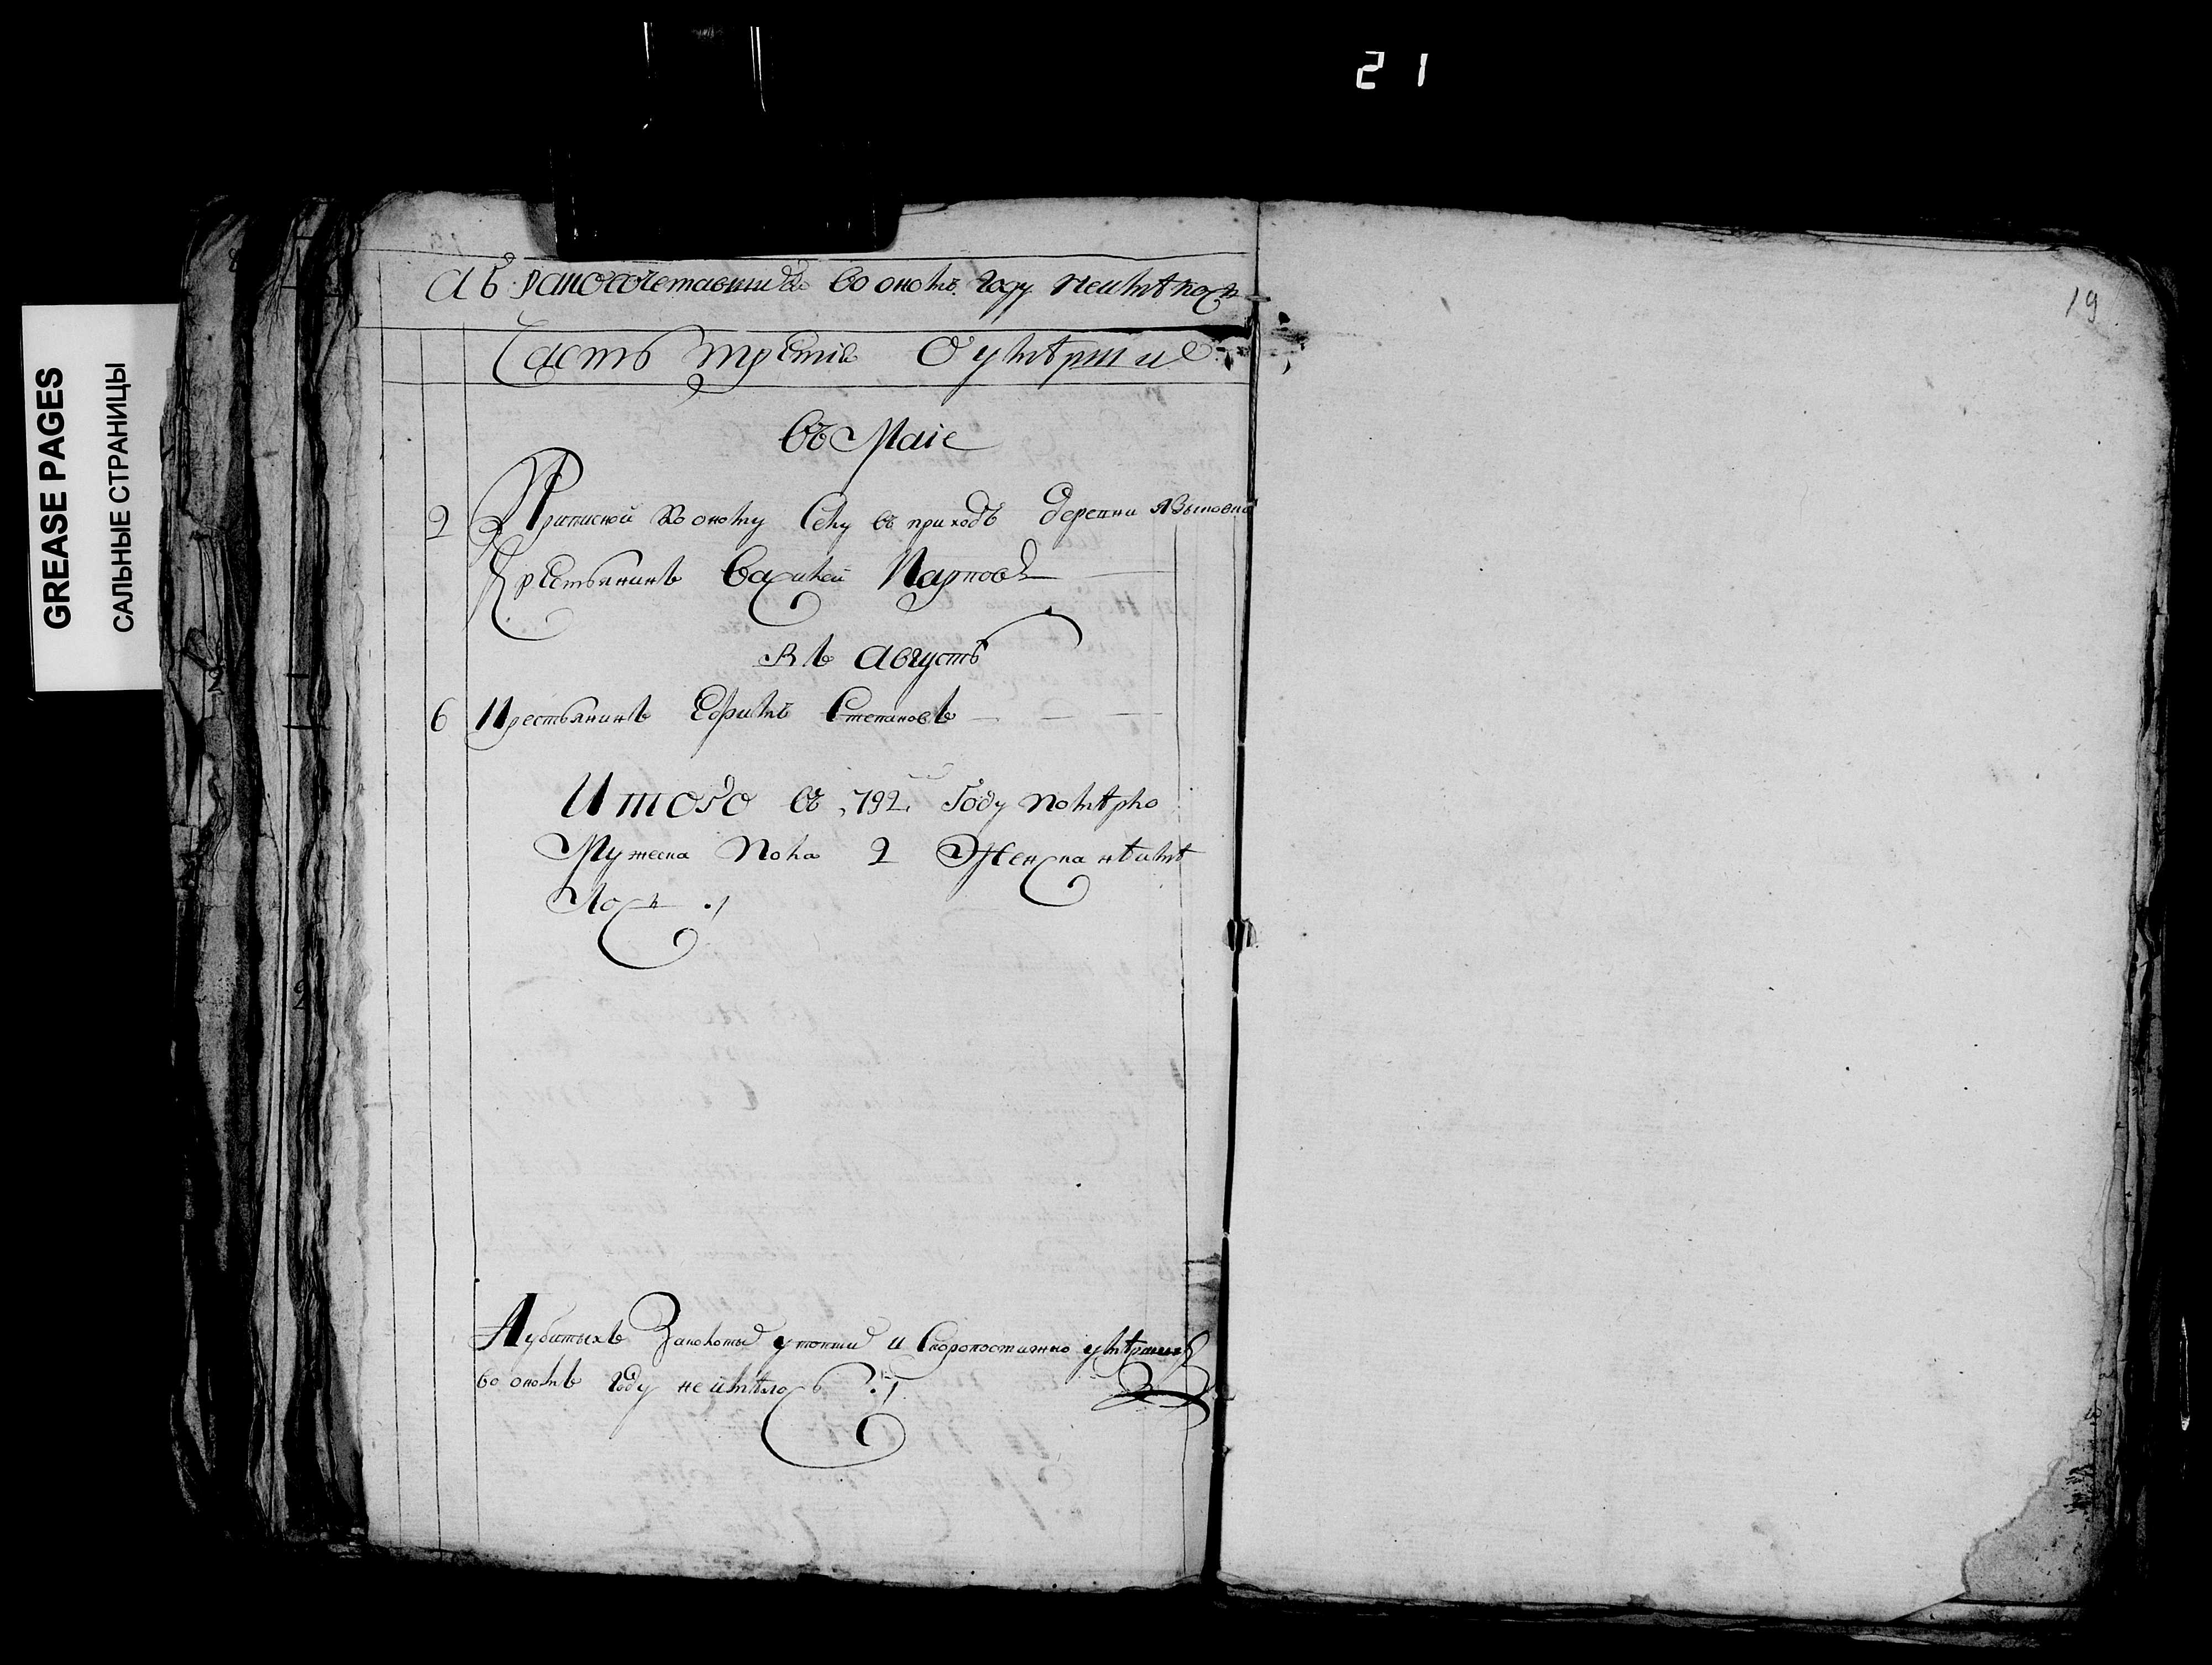 21
19
GREASE PAGES
САЛЬНЫЕ СТРАНИЦЫ
А бракосочетавшихся во ономъ году неимѣлось
Часть третїя О умѣршихъ
въ Маїе
2 Приписной ко оному Селу въ приходъ деревни
Крестьянинъ Василей Карповъ
въ Августѣ
6 Крестьянинъ Ефимъ Степановъ
Итого въ 792 Году помѣрло
Мужеска пола 2 Женска нѣимѣ
лось
А убитыхъ Заколотыхъ утопшихъ и Скоропостижно умѣршихъ
во ономъ году неимѣлось